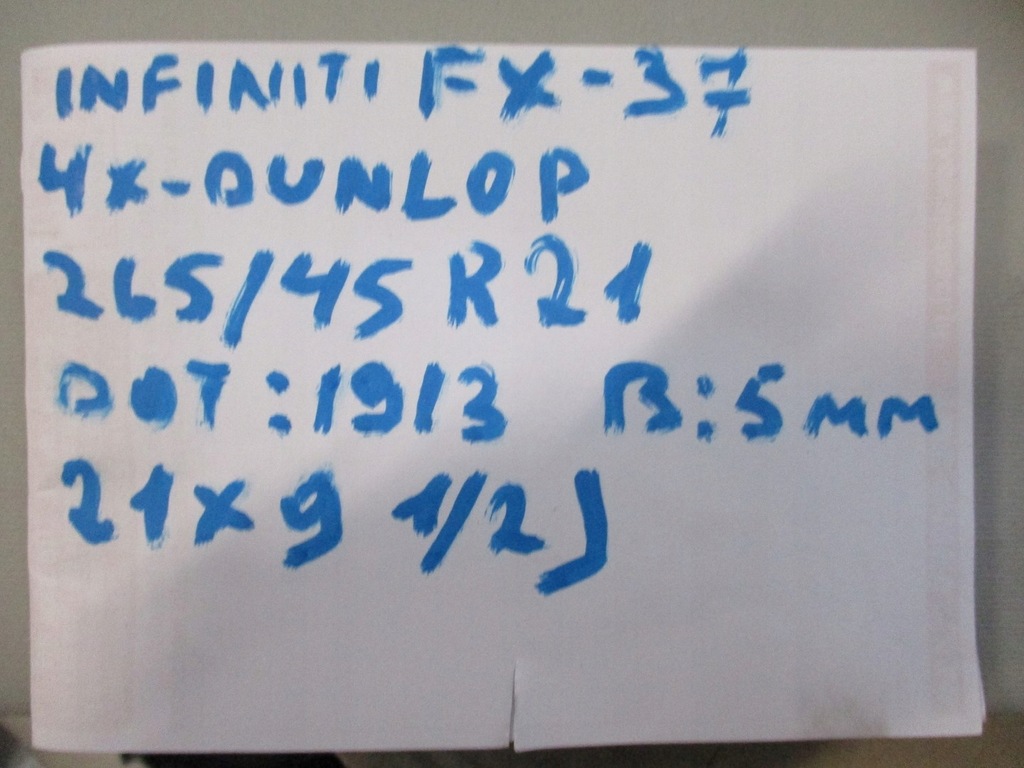 INFINITI FX-37
4x-DUNLOP
265/45 R21
DOT:1913 B:5mm
21x9 1/2J